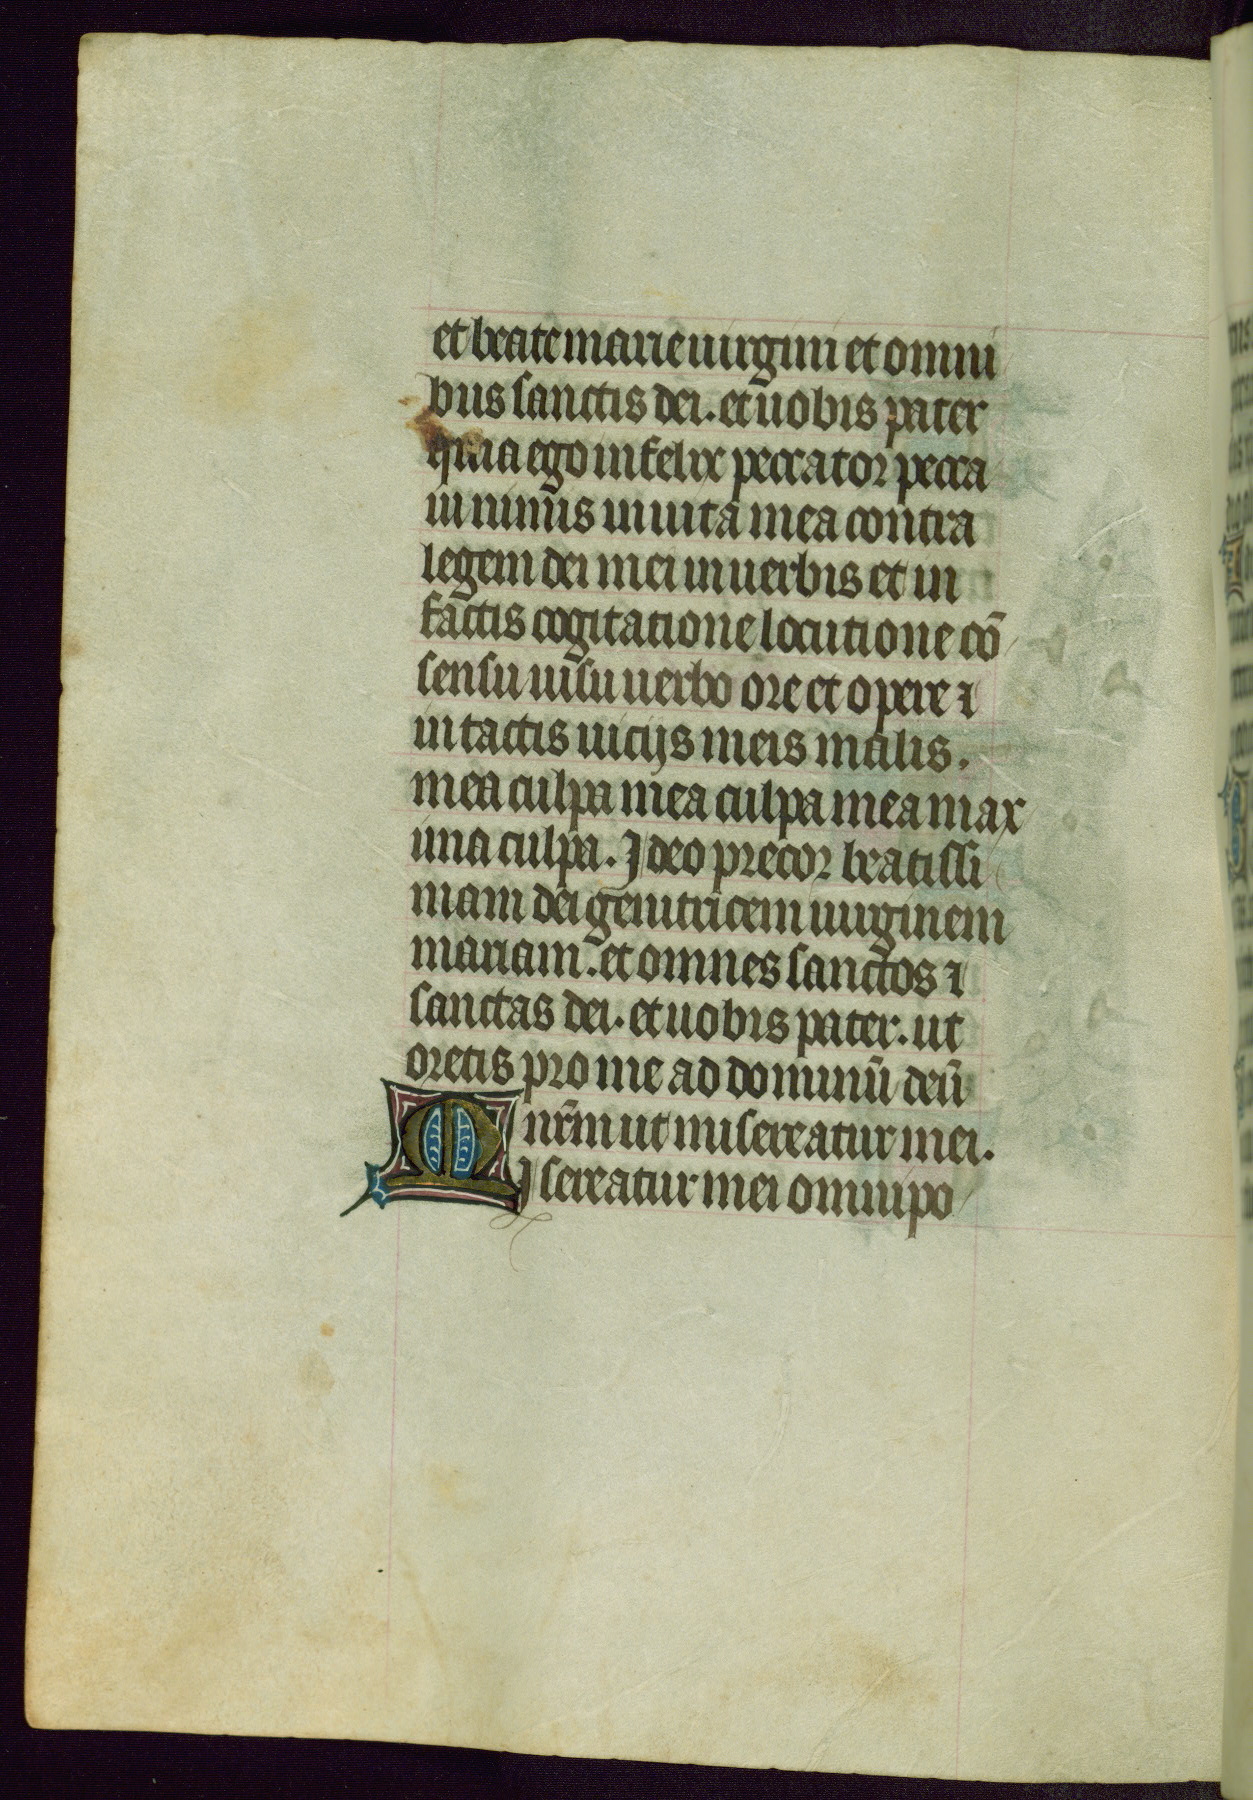 et beate marie uirgini et omni
bus sanctis dei. et uobis pater
quia ego infelix peccator pecca
ui nimis in uita mea contra
legem dei mei in uerbis et in
factis cogitatione locutione cō
sensu uisu uerbo ore et opere ⁊
in tactis uicijs meis malis.
mea culpa mea culpa mea max
ima culpa. Ideo precor beatissi
mam dei genitricem uirginem
mariam. et omnes sanctos ⁊
sanctas dei. et uobis pater. ut
oretis pro me ad dominū deū
nr̄m ut misereatur mei.
Misereatur mei omnipo